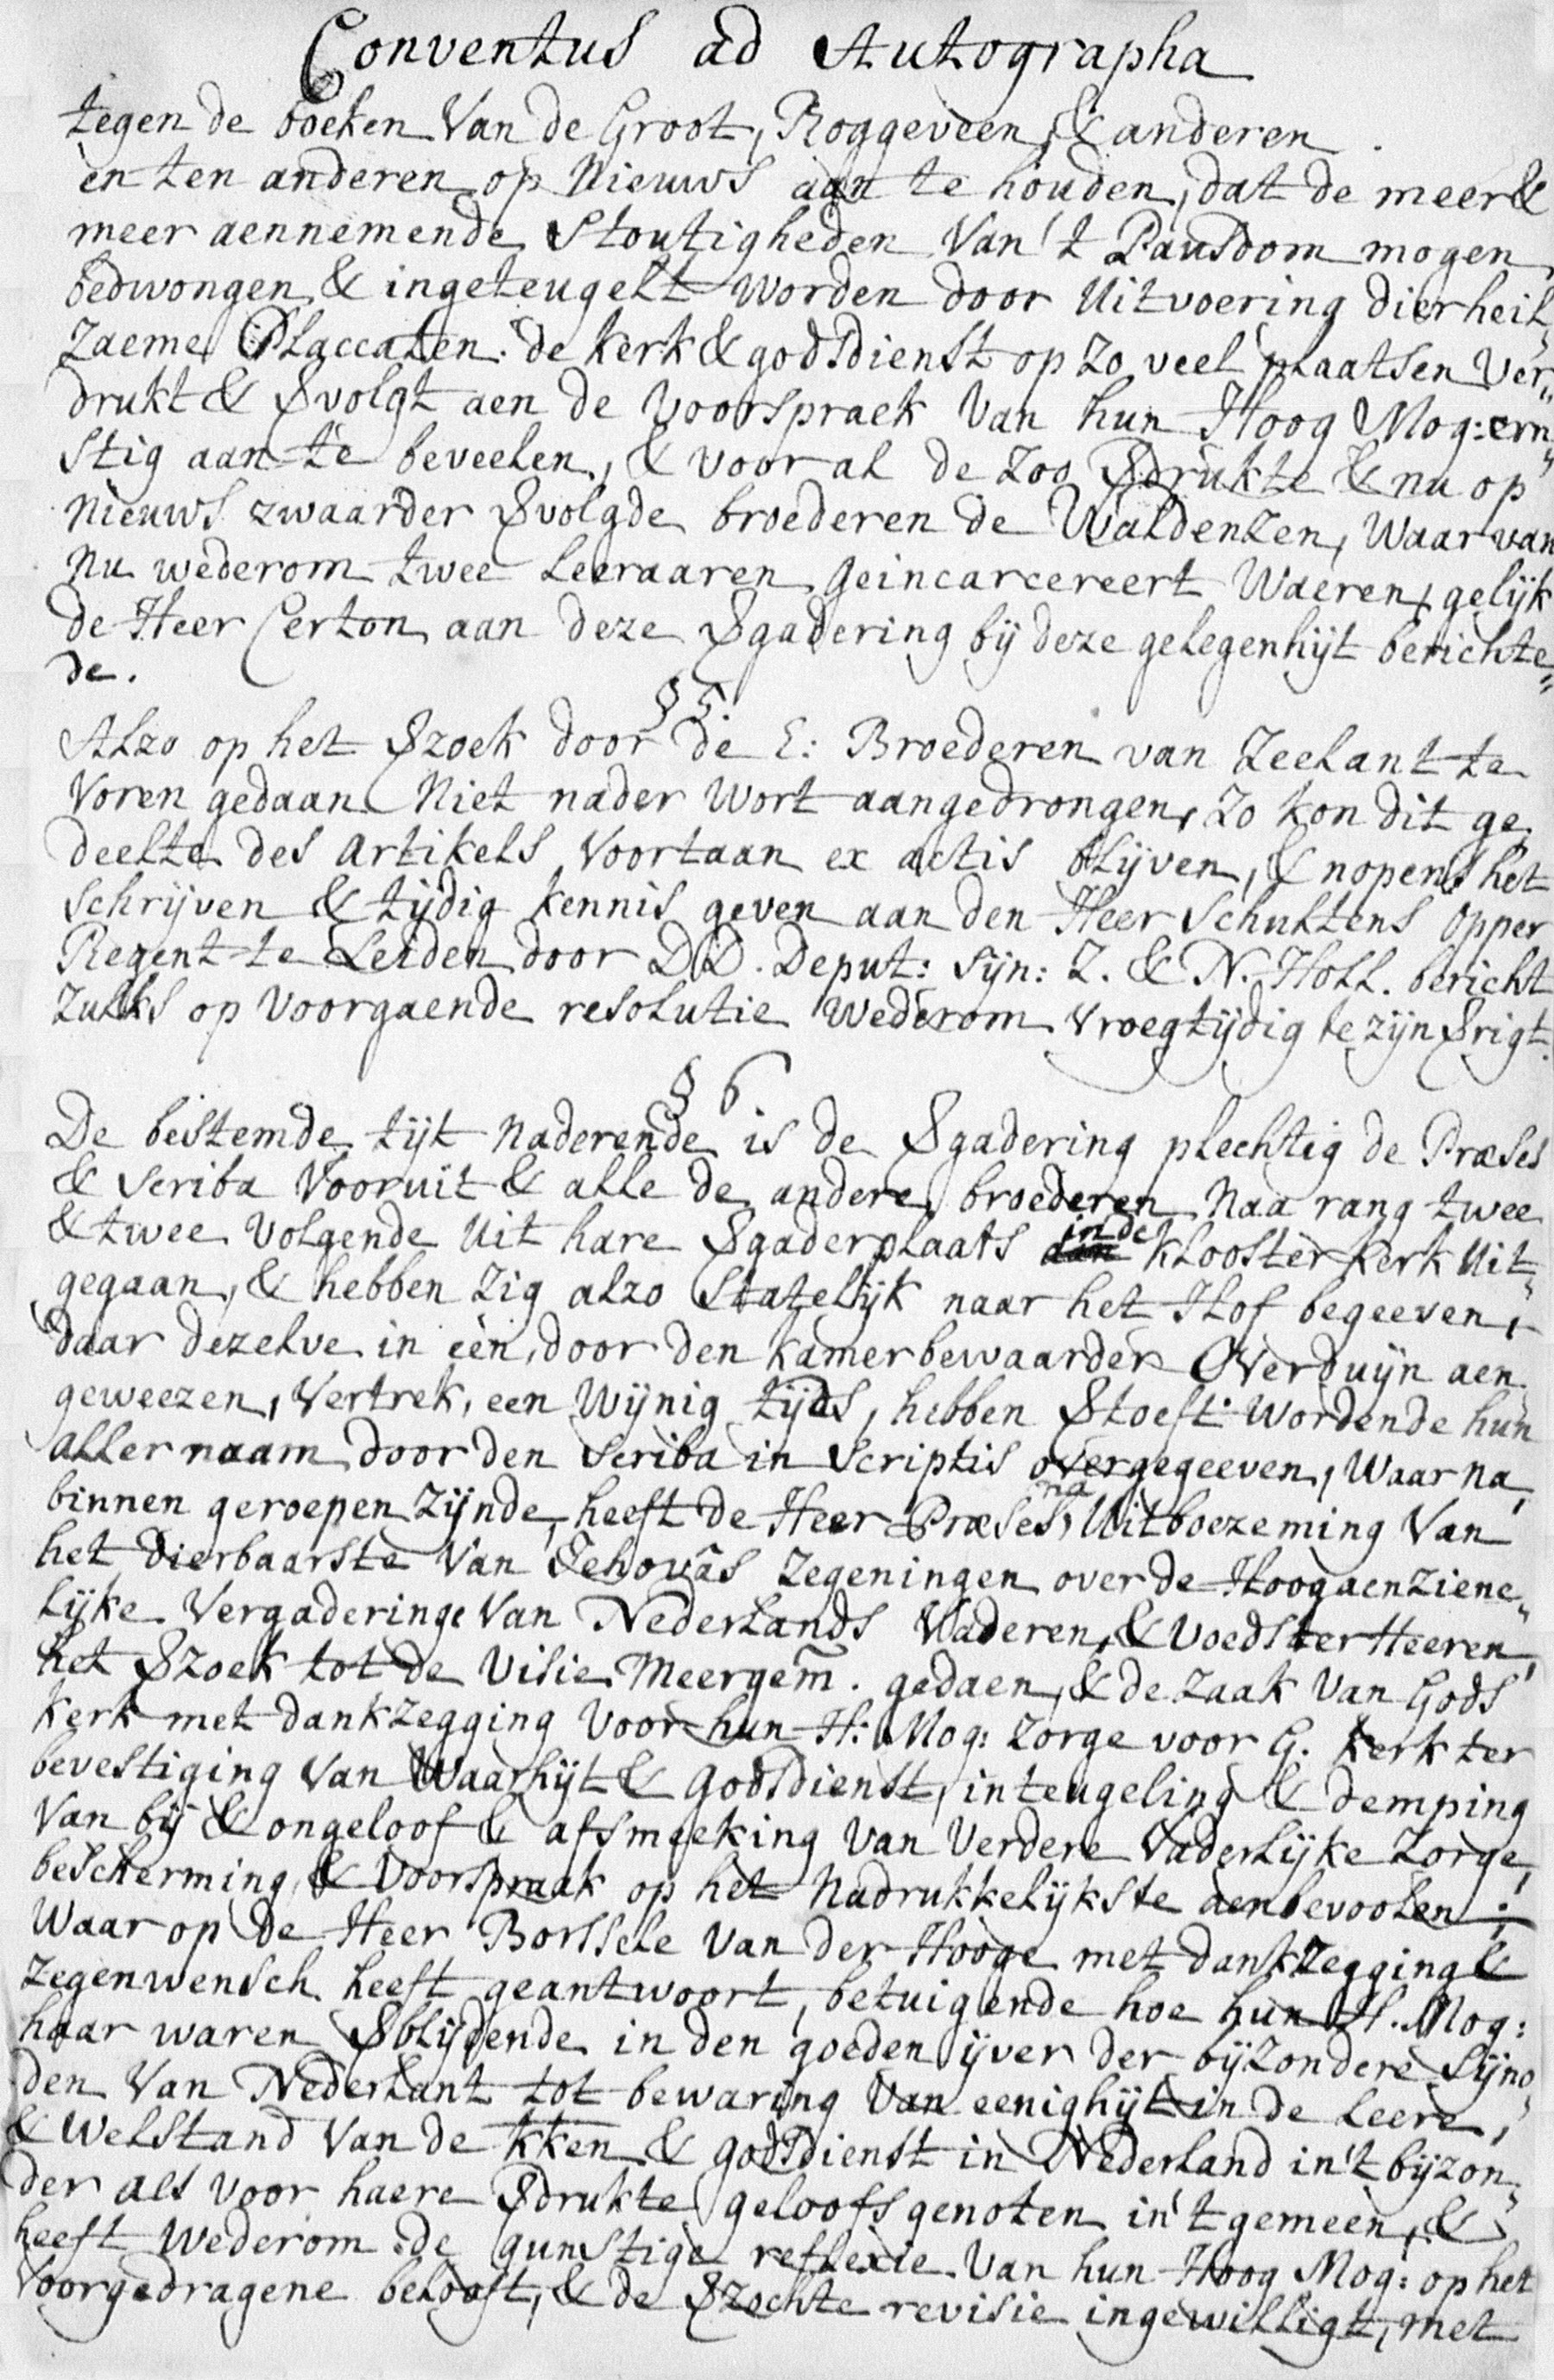 Conventus ad Autographa
tegen de boeken Van de Groot, Roggeveen, & anderen.
en ten anderen op Nieuws aan te houden, dat de meer &
meer aennemende Stoutigheden Van 't Pausdom mogen
bedwongen & ingeteugelt Worden door Uitvoering dier heil„
Zaeme Placcaten: de kerk & godsdienst op Zo veel plaatsen Ver„
drukt & Svolgt aen de Voorspraek Van hun Hoog Mog: ern„
Stig aan te beveelen, & voor al de Zoo Sdrukte & nu op
Nieuws zwaarder Svolgde broederen de Waldenzen, Waar van
Nu wederom twee Leeraaren geincarcereert Waeren, gelijk
de Heer Certon aan deze Sgadering bij deze gelegenhijt berichte„
de.
§ 5.
Alzo op het Szoek door de E: Broederen van Zeelant te
Voren gedaan Niet nader Wort aangedrongen, Zo kon dit ge„
deelte des Artikels Voortaan ex actis blijven, & nopens het
Schrijven & tijdig kennis geven aan den Heer Schultens Opper
Regent te Leiden door DD. Deput: Sijn: Z. & N. Holl. bericht
Zulks op Voorgaende resolutie Wederom Vroegtijdig te zijn Srigt.
§ 6
De bestemde tijt Naderende is de Sgadering plechtig de Præses
& Scriba Vooruit & alle de andere broederen Naa rang twee
& twee Volgende Uit hare Sgaderplaats in de Klooster kerk Uit„
gegaan, & hebben Zig alzo Statelijk naar het Hof begeeven,
daar dezelve in één, door den Kamerbewaarder Overduijn aen„
geweezen, Vertrek, een Wijnig tijds, hebben Stoeft: Wordende hun
aller naam door den Scriba in Scriptis overgegeeven, Waar na
binnen geroepen Zijnde, heeft de Heer Præses, na Uitboezeming Van
het dierbaarste Van Jehovâs Zegeningen over de Hoogaenziene„
lijke Vergaderinge Van Nederlands Vaderen, & Voedster Heeren,
het Szoek tot de Visie Meergem̄. gedaen, & de Zaak Van Gods
Kerk met dankzegging Voor hun H: Mog: Zorge voor G. Kerk ter
bevestiging Van Waarhijt & Godsdienst, inteugeling & demping
Van bij & ongeloof & afsmeeking Van Verdere Vaderlijke Zorge,
bescherming, & Voorspraak op het Nadrukkelijkste aenbevoolen;
Waar op de Heer Borssele Van der Hooge met dankzegging &
Zegenwensch heeft geantwoort, betuigende hoe hun H. Mog:
haar waren Sblijdende in den goeden ijver der bijzondere Sijno„
den Van Nederlant tot bewaring Van eenighijt in de Leere,
& Welstand Van de kken & godsdienst in Nederland in 't bijzon„
der als Voor haere Sdrukte geloofsgenoten in 't gemeen, &
heeft Wederom de gunstige reflexie Van hun Hoog Mog: op het
Voorgedragene belooft, & de Szochte revisie ingewilligt, met